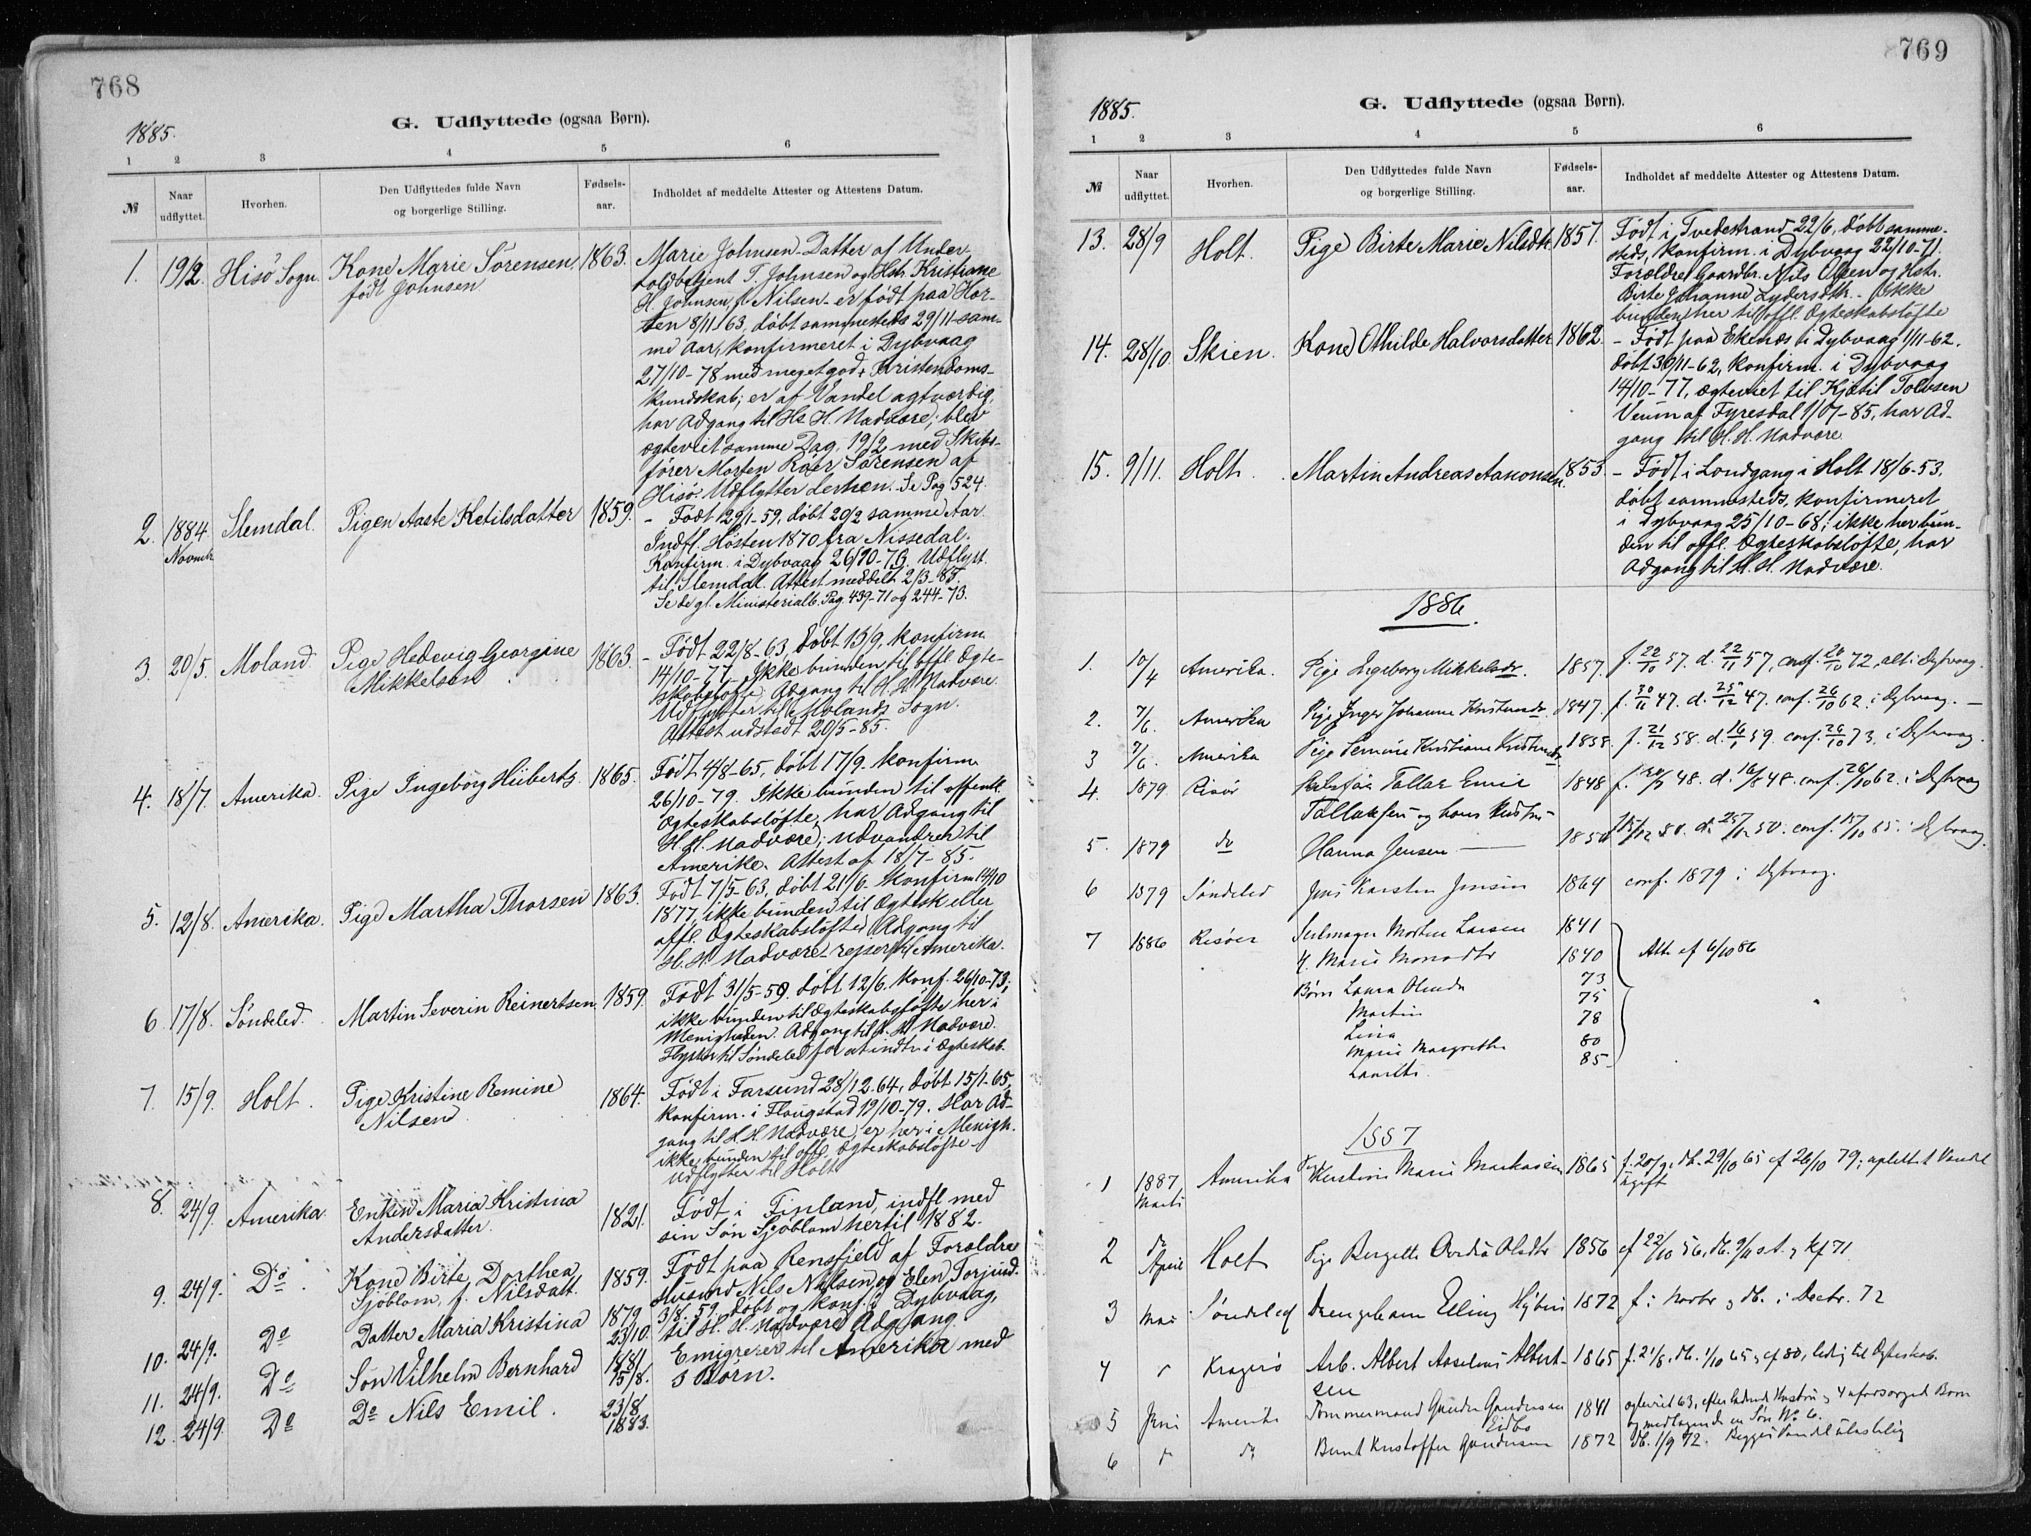 768
1885.
G. Udflyttede (ogsaa Børn).
1 2 3 4 5 6
№ Naar udflyttet. Hvorhen. Den Udflyttedes fulde Navn og borgerlige Stilling. Fødsels-aar. Indholdet af meddelte Attester og Attestens Datum.
1. 19/2. Hisö Sogn. Kone Marie Sörensen 1863. Marie Johnsen Datter af Under
född Johnsen toldbetjent T. Johnsen og Hstr. Kristiane
H. Johnsen, f. Nilsen er født paa Hor-
ten 8/11 63, døbt sammesteds 29/11 sam-
me Aar, konfirmeret i Dybvaag
27/10-78 med meget god + Kristendoms-
kundskab; er af Vandel agtværdig,
har Adgang til Hs. H. Nadvere; blev
ægteviet samme Dag, 19/2 med Skibs-
fører Morten Roer Sørensen af
Hisö. Udflytter derhen. Se Pag 524.
2. 1884. Slemdal. Pigen Aaste Ketilsdatter 1859. - Født 29/1-59, døbt 20/2 samme Aar.
Novmbr. Indfl. Høsten 1870 fra Nissedal.
Konfirm. i Dybvaag 26/10-73. Udflytt.
til Slemdal. Attest meddelt 2/3-85.
Se de gl. Ministerialb. Pag. 439-71 og 244-73.
3. 20/5. Moland. Pige Hedevig Georgine 1863. - Født 22/8-63, døbt 13/9, konfirm.
Mikkelsen 14/10-77. Ikke bunden til offl. Ægte-
skabsløfte. Adgang til H. H. Nadvere.
Udflytter til Molands Sogn.
Attest udstedt 20/5-85.
4. 18/7. Amerika. Pige Ingebörg Hübertz 1865. Født 4/8-65, døbt 17/9. konfirm.
26/10-79. Ikke bunden til offentl.
Ægteskabsløfte, har Adgang til
H. H. Nadvere; udvandrer til
Amerika. Attest af 18/7-85.
5. 12/8. Amerika. Pige Martha Thorsen 1863. Født 7/5-63, døbt 21/6. konfirm 14/10
1877, ikke bunden til Ægtesk. eller
offl. Ægteskabsløfte. Adgang til
H. H. Nadvere - rejser til Amerika.
6. 17/8. Söndeled. Martin Severin Reinertsen 1859. Født 31/5-59. døbt 12/6. Konf. 26/10-73;
ikke bunden til Ægteskabsløfte her i
Menigheden. Adgang til H. H. Nadvere.
Flytter til Söndeled for at indtr. i Ægteskab.
7. 15/9. Holt. Pige Kristine Remine 1864. Født i Farsund 28/12.64, døbt 15/1-65,
Nilsen konfirm. i Flougstad 19/10-79. Har Ad-
gang til H. H. Nadvere, er her i Menigh.
ikke bunden til offl. Ægteskabsløfte
udflytter til Holt
8. 24/9. Amerika Enken Maria Kristina 1821. Født i Finland, indfl. med
Andersdatter. sin Søn Sjöblom hertil 1882.
9. 24/9. Do. Kone Birte Dorthea 1859. Født paa Rensfjeld af Forældre
Sjöblom, f. Nilsdatt. Husmd. Nils Nilsen og Elen Terjusd.
10. 24/9. Do Datter Maria Kristina 1879 23/10. 3/8.59, døbt og konf. i Dybvaag,
til H. H. Nadvere Adgang.
11. 24/9. Do Søn Vilhelm Bernhard 1881 15/8. Emigrerer til Amerika med
3 Børn.
12. 24/9. Do Do Nils Emil. 23/8 1883.
769
1885.
G. Udflyttede (ogsaa Børn).
1 2 3 4 5 6
№ Naar udflyttet. Hvorhen. Den Udflyttedes fulde Navn og borgerlige Stilling. Fødsels-aar. Indholdet af meddelte Attester og Attestens Datum.
13. 28/9 Holt. Pige Birte Marie Nilsdtr. 1857. Født i Tvedestrand 22/6, døbt samme-
steds, konfirm. i Dybvaag 22/10-71.
Forældre Gaardbr. Nils Olsen og Hstr.
Birte Johanne Lydersdtr. - Ikke
bunden her til offl. Ægteskabsløfte
14. 28/10. Skien. Kone Othilde Halvorsdatter 1862. - Født paa Ekenæs i Dybvaag 1/11-62.
døbt 30/11-62, konfirm. i Dybvaag
14/10-77, ægteviet til Kjætil Tolvsen
Veum af Fyresdal 1/07-85, har Ad-
gang til H. H. Nadvere.
15. 9/11. Holt. Martin Andreas Aanonsen 1853. - Født i Londgang i Holt 18/6-53.
døbt sammesteds, konfirmeret
i Dybvaag 25/10-68; ikke her bun-
den til offl. Ægteskabsløfte, har
Adgang til H. H. Nadvere.
1886.
1. 10/4 Amerika. Pige Ingeborg Mikkelsdr. 1857. f. 22/10 57. d. 22/11 57, conf. 20/10 72, alt i Dybvaag.
2. 7/6. Amerika Pige Inger Johanne 1847 f. 30/11 47. d. 25/12 47. conf. 26/10 62. i Dybvaag.
3 7/6. Amerika Pige 1858. f. 21/12 58. d. 16/1 59. conf. 26/10 73. i Dybvaag.
4. 1879. Risør Tallak Emil 1848 48. d. 16/8 48. conf. 26/10 62. i Dybvaag
Tallaksen og hans Hustru
5. 1879 do Hanna Jensen 1850 50. d. 25/12 50. conf. 15/10 65. i Dybvaag.
6 1879 Søndeled Jens Karsten Jensen 1864 conf. 1879 i Dybvaag.
7 1886 Risøer Seilmager Morten Larsen 1841
H. Marie Monsdtr 1840 Att. af 6/10 86
Børn Laura Olanda 73
Martin 75
Lina 78
Marie Margrethe 80
Lauritz. 85
1887
1 1887, Marts Amerika Pige Kirstine Marie Markussen 1865 f. 20/9, db. 29/10 65 cf 26/10 79; uplettet Vandel
ugift
2 do April Holt Pige Bergitte Olsdtr 1856 cf 22/10 56, db. 9/11 s.A. kf 71
3 Mai Søndeled Drengebarn Elling 1872 f. i Novbr og db. i Decbr. 72
4 Kragerø Arb. Albert Asselius Albert- 1865 f. 21/8, db. 1/10 65, cf 80, ledig til Ægteskab.
sen
5 Juni Amerika Tømmermand Gunder Gundersen 1841 ægteviet 63, efterladende Hustru og 4 uforsørgede Børn
Eidbo og medtagende en Søn No 6.
6 do Bernt Kristoffer Gundersen 1872 db. 1/9 72. Begges Vandel ulastelig